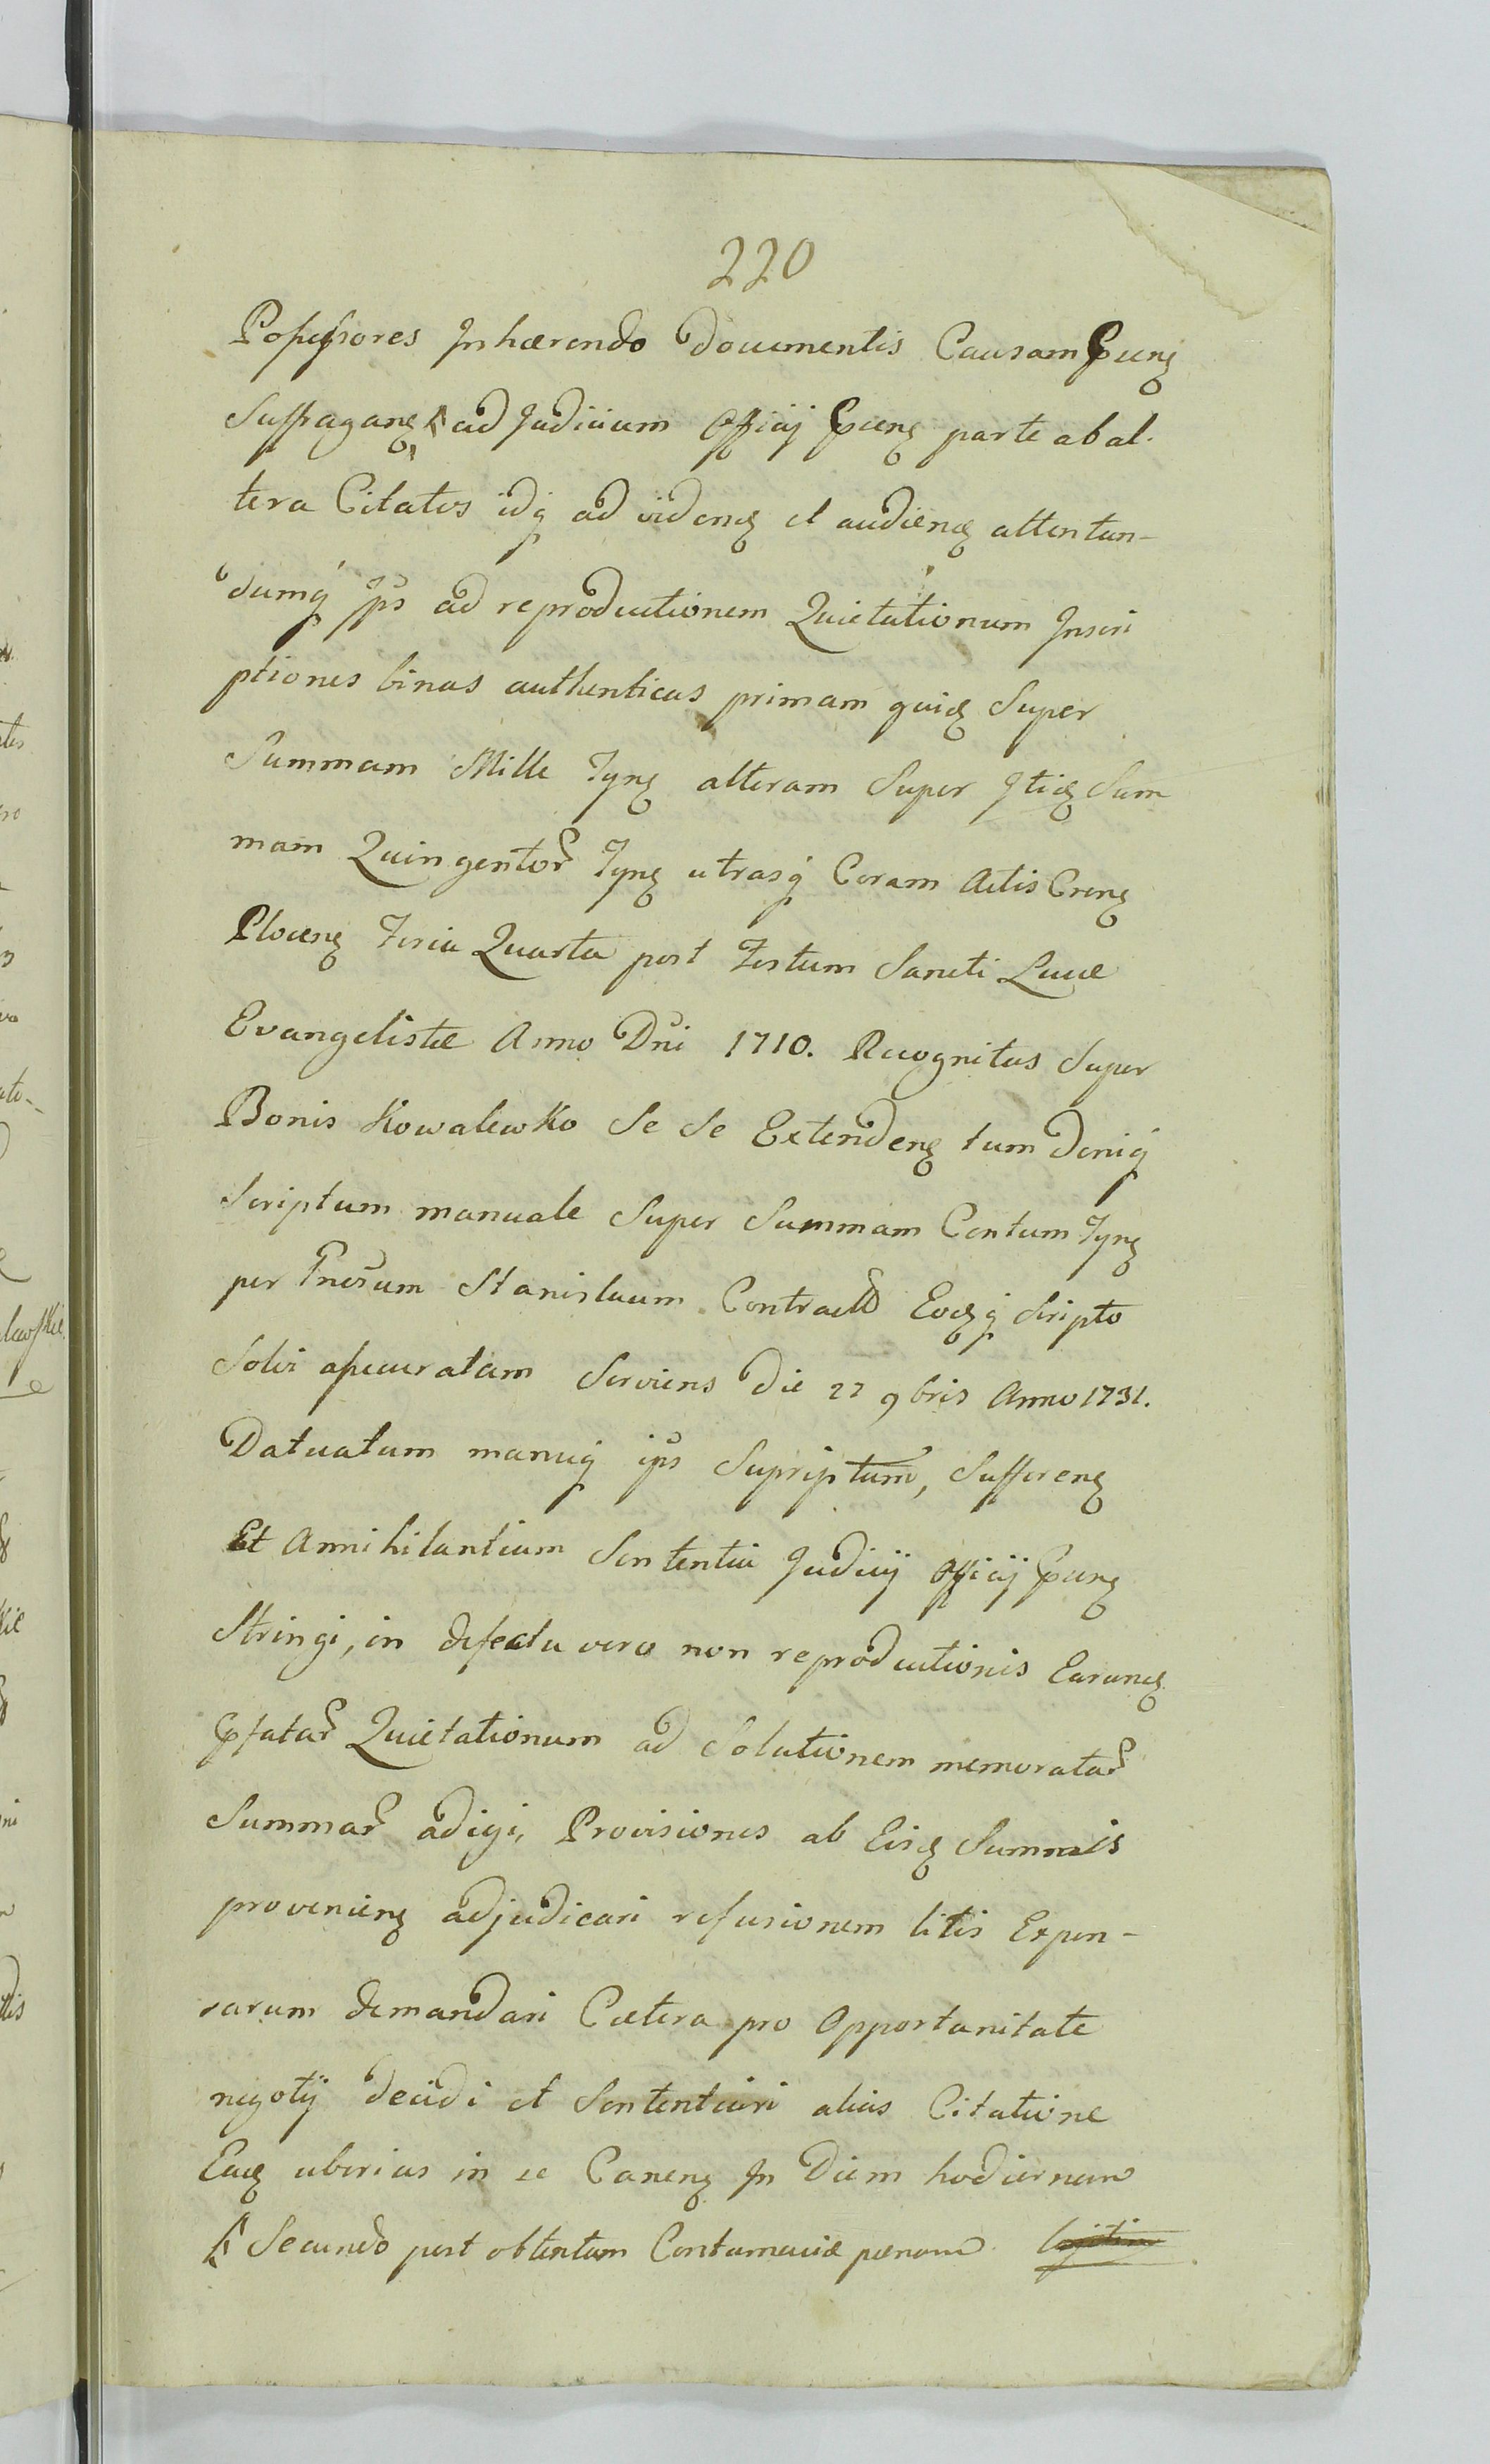 220
Possessores Inhærendo Documentis Causam Pnẽ
Suffraganẽ ad Judicium Officij Pnẽ parte ab al.
tera Citatos idq̃ ad videnẽ et audienẽ attentan-
dumq̃ Ips ad reproductionem Quietationum Inscri
ptiones binas authenticas primam quidẽ Super
Summam Mille Tynẽ alteram Super Itidẽ Sum
mam Quingentor Tynẽ utrasq̃ Coram Actis Crenẽ
Plocenẽ Feria Quarta post Festum Sancti Lucæ
Evangelistæ Anno Dni 1710. Recognitas Super
Bonis Kowalewko Se Se Extendenẽ tum Deniq̃
Scriptum manuale Super Summam Centum Tynẽ
per Stanislaum Contracto Eodẽq̃ Scripto
Solvi assecuratam Serviens Die 22 9bris Anno 1731.
Datuatum manuq̃ ips Supscriptum, Sufferenẽ
Et Annihilantium Sententia Judicij Officij Pnẽ
Stringi, in defectu vero non reproductionis Earundẽ
pfatar Quietationum ad Solutionem memoratar
Summar adigi, Provisiones ab Eisdẽ Summis
provenienẽ adjudicari refusionem litis Expen-
sarum demandari Cætera pro Opportunitate
negotij decidi et Sententiari alias Citatione
Eadẽ uberius in se Canenẽ In Diem hodiernum
Secundo post obtentam Contumaciæ pænam